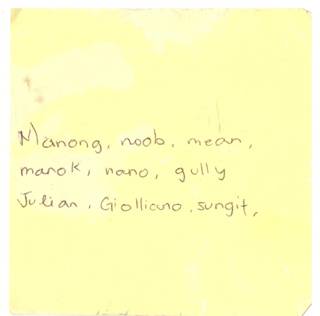 Manong, noob, mean,
manok, nano, gully
Julian, Giolliano, sungit,